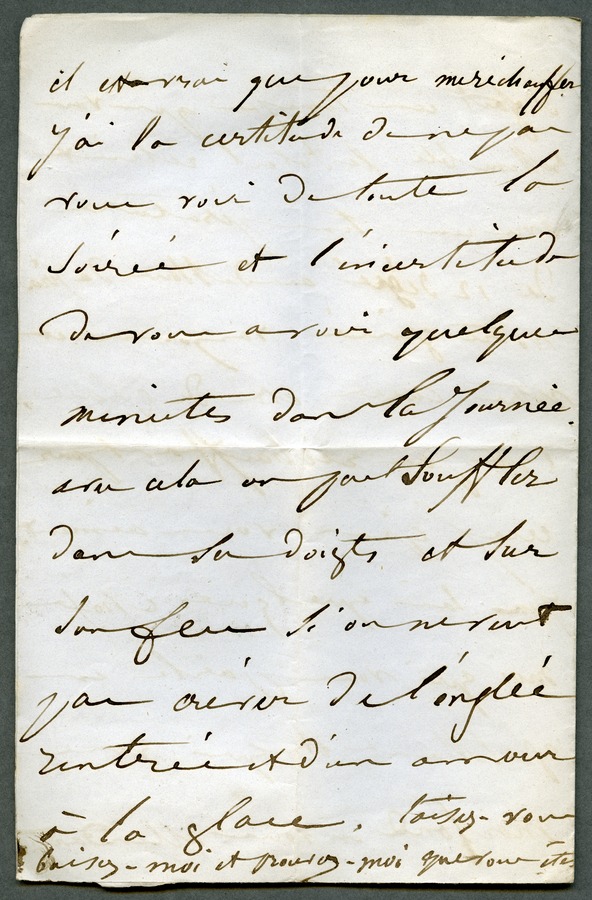 il est vrai que pour me réchauffer
j'ai la certitude de ne pas
vous voir de toute la
soirée et l'incertitude
de vous avoir quelques
minutes dans la journée.
avec cela on peut souffler
dans ses doigts et sur
son feu si on ne veut
pas crever de l'onglée
rentrée et d'un amour
à la glace. taisez-vous
baisez-moi et prouvez-moi que vous êtes